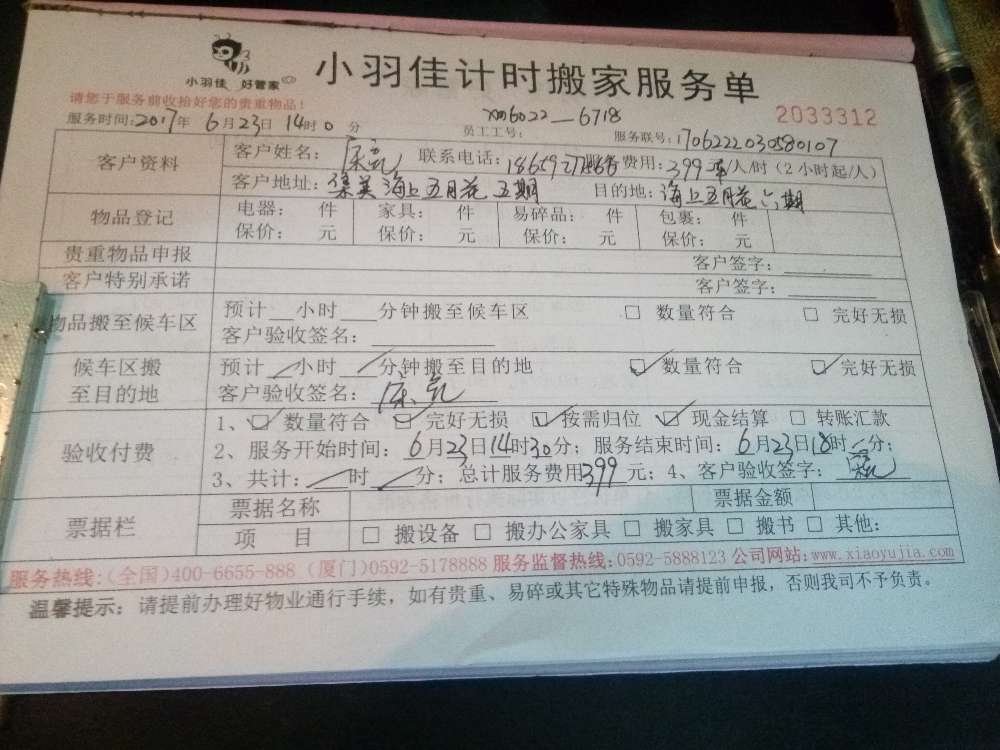 小羽佳 好管家
小羽佳计时搬家服务单
请您于服务前收拾好您的贵重物品！
2033312
服务时间：2017年 6月23日 14时0分 员工工号：xm6022—6718 服务联号：1706222030580107
客户资料 客户姓名： 联系电话： 费用：399车/人/时（2小时起/人）
客户地址：集美海上五月花五期 目的地：海上五月花六期
物品登记 电器： 件 家具： 件 易碎品： 件 包裹： 件
保价： 元 保价： 元 保价： 元 保价： 元
贵重物品申报 客户签字：
客户特别承诺 客户签字：
物品搬至候车区 预计 小时 分钟搬至候车区 □ 数量符合 □ 完好无损
客户验收签名：
候车区搬至目的地 预计 小时 分钟搬至目的地 ☑ 数量符合 ☑ 完好无损
客户验收签名：
验收付费 1、☑ 数量符合 ☑ 完好无损 ☑ 按需归位 ☑ 现金结算 □ 转账汇款
2、服务开始时间：6月23日14时30分；服务结束时间：6月23日18时 分；
3、共计： 时 分；总计服务费用399元；4、客户验收签字：
票据栏 票据名称 票据金额
项 目 □ 搬设备 □ 搬办公家具 □ 搬家具 □ 搬书 □ 其他：
服务热线：(全国)400-6655-888 (厦门)0592-5178888 服务监督热线：0592-5888123 公司网站：www.xiaoyujia.com
温馨提示：请提前办理好物业通行手续，如有贵重、易碎或其它特殊物品请提前申报，否则我司不予负责。